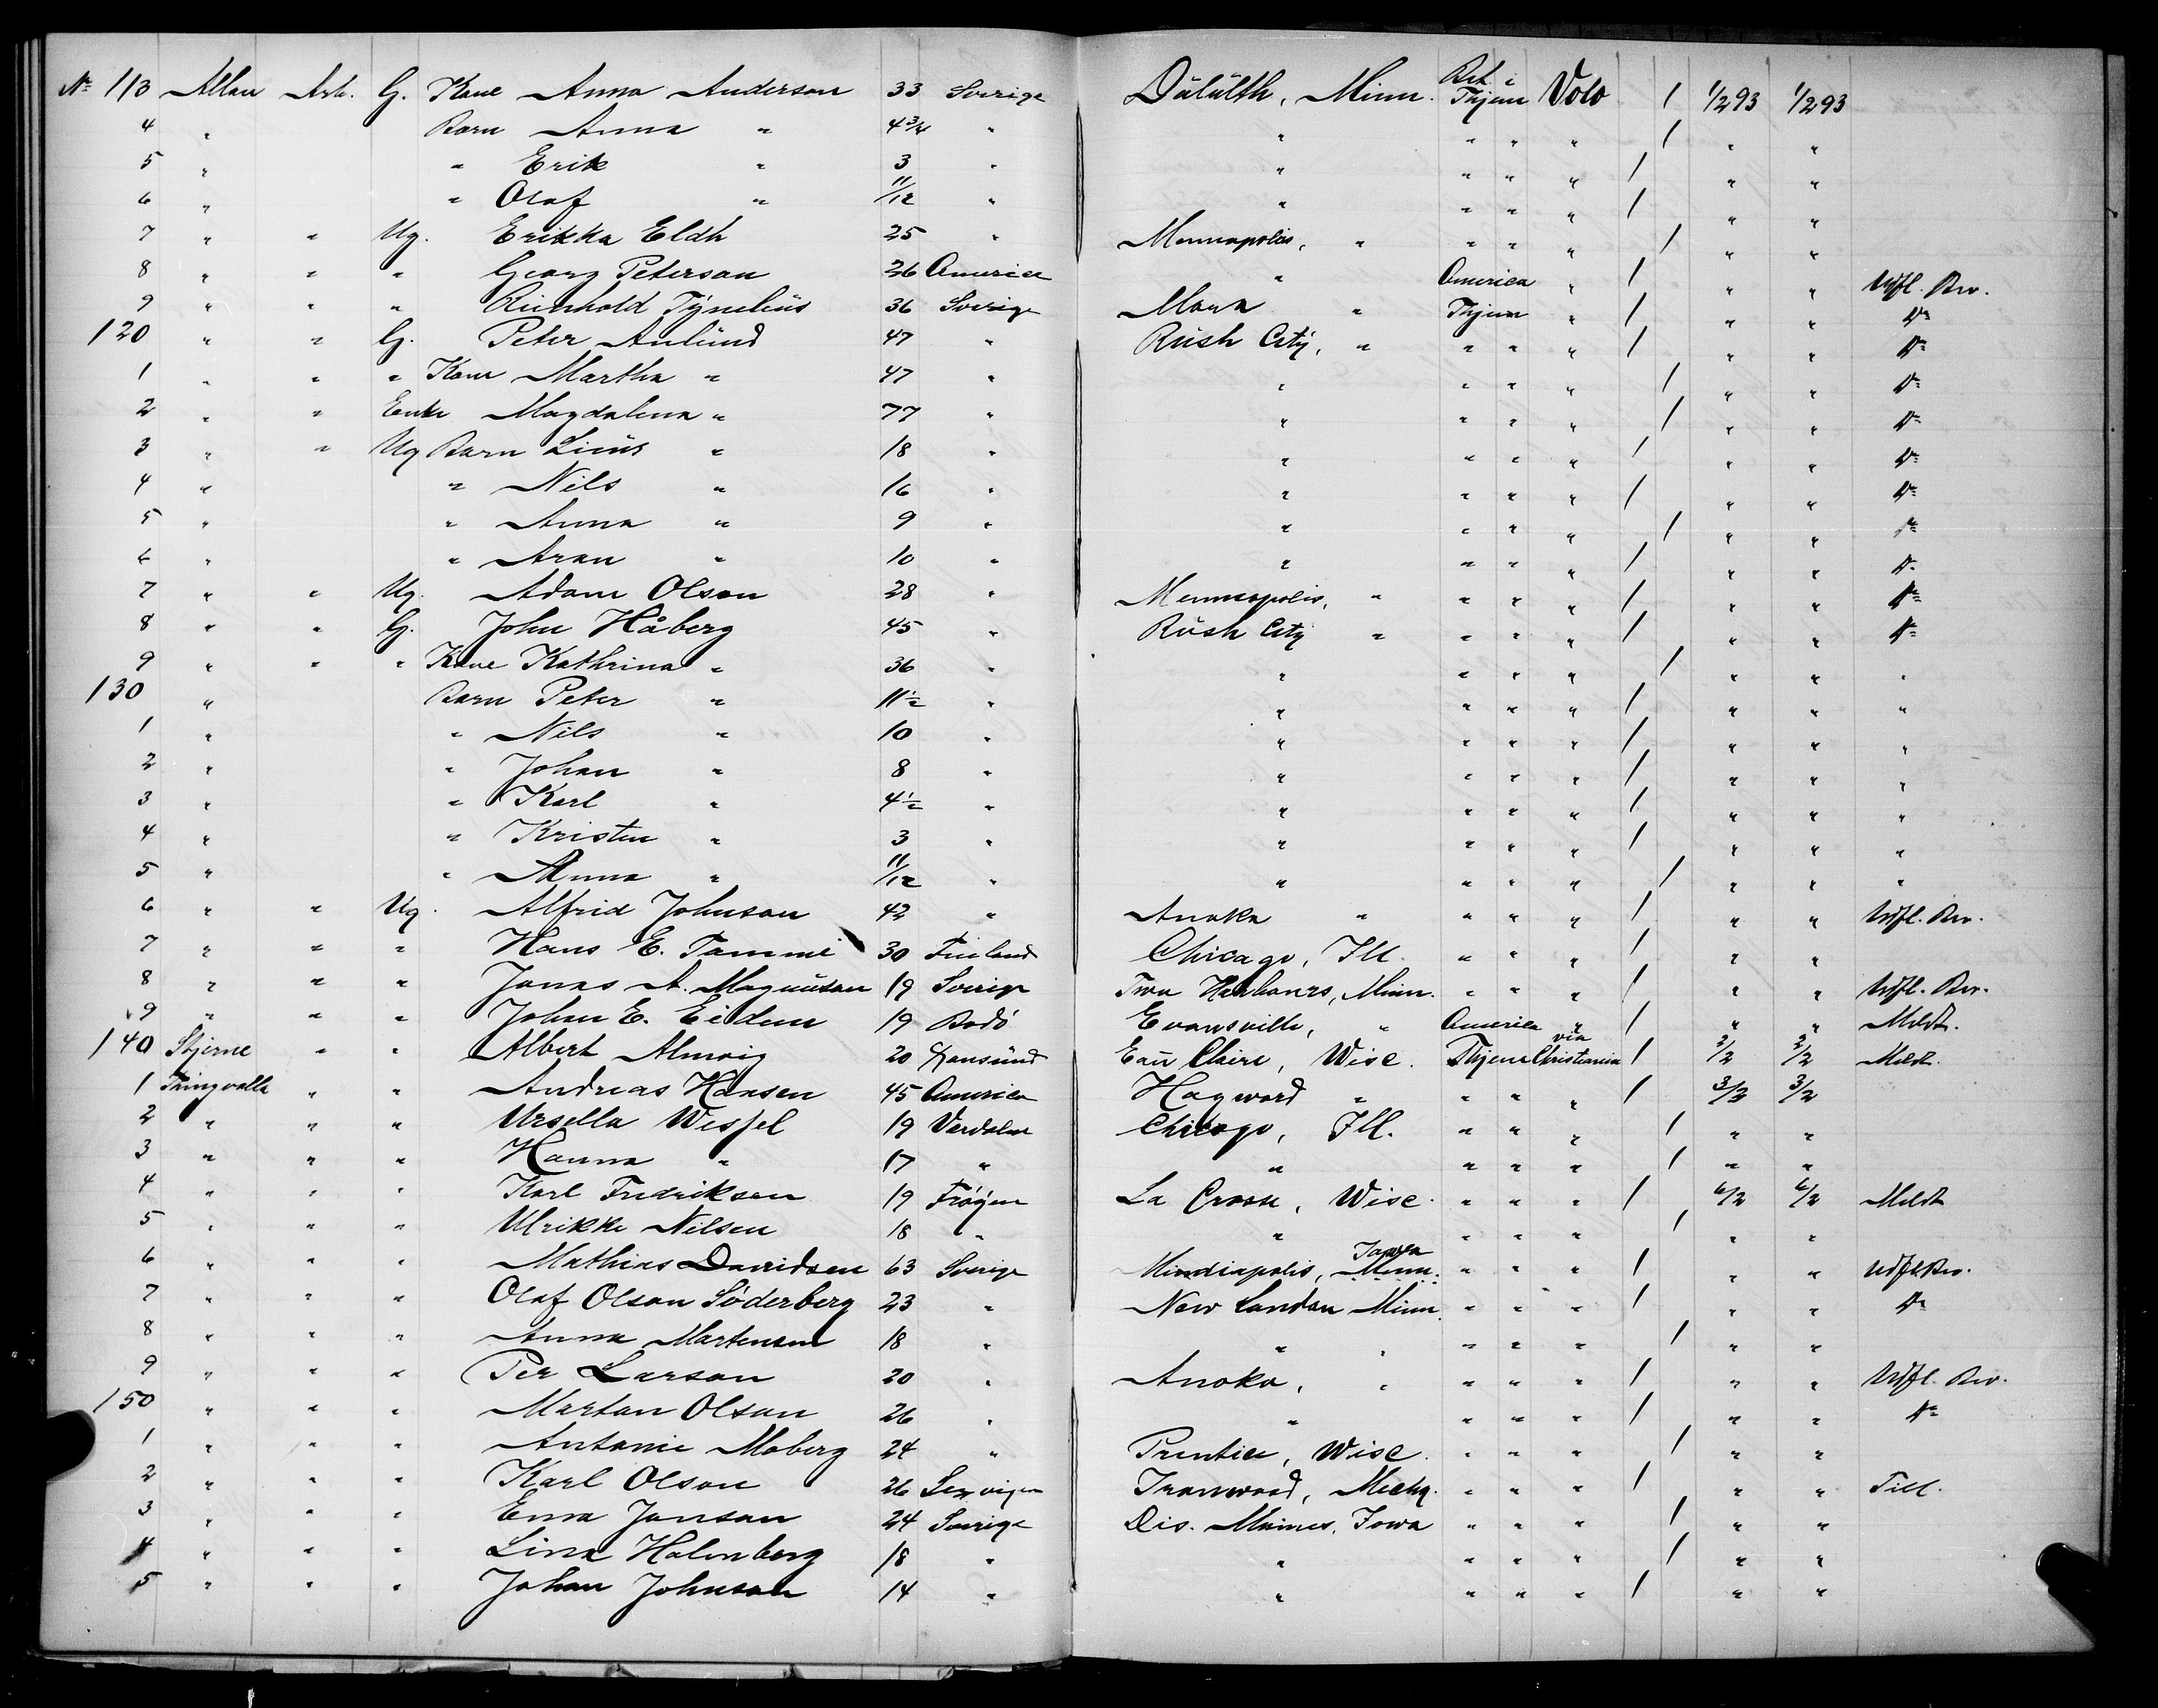 No 113 Allan Arb. G. Kone Anna Anderson 33 Sverige Dülülth, Minn. Bet. i Thjem Volo 1 1/2 93 1/2 93
4 " Barn Anna " 4 3/4 " " " " " 1 " "
5 " " Erik " 3 " " " " " 1 " "
6 " " Olaf " 11/12 " " " " " 1 " "
7 " " Ug. Erikka Eldh 25 " Menneapolis, " " " " 1 " "
8 " " " Georg Peterson 26 America " America " 1 " " Udfl. Bev.
9 " " " Reinhold Tynelius 36 Sverige Mora " Thjem " 1 " " Do
120 " " G. Peter Anlünd 47 " Rüsh City, " " " " 1 " " Do
1 " " " Kone Martha " 47 " " " " " 1 " " Do
2 " " Enke Magdalena " 77 " " " " " 1 " " Do
3 " " Ug Barn Linüs " 18 " " " " " 1 " " Do
4 " " Nils " 16 " " " " " 1 " " Do
5 " " Anna " 9 " " " " " 1 " " Do
6 " " Aran " 10 " " " " " 1 " " Do
7 " " Ug. Adam Olson 28 " Menneapolis, " " " " 1 " " Do
8 " " G. John Håberg 45 " Rüsh City " " " " 1 " " Do
9 " " " Kone Kathrina " 36 " " " " " 1 " " "
130 " Barn Peter " 11 1/2 " " " " " 1 " " "
1 " " Nils " 10 " " " " " 1 " " "
2 " " Johan " 8 " " " " " 1 " " "
3 " " Karl " 4 1/2 " " " " " 1 " " "
4 " " Kristen " 3 " " " " " 1 " " "
5 " " Anna " 11/12 " " " " " 1 " " "
6 " " Ug. Alfrid Johnson 42 " Anoka " " " " 1 " " Udfl. Bev.
7 " " " Hans E. Tammi 30 Finland Chicago, Ill. " " " 1 " "
8 " " " Jonas A. Magnüson 19 Sverige Two Harbours, Minn. " " " 1 " " Udfl. Bev.
9 " " " Johan E. Eidem 19 Bodö Evansville, " America " 1 " " Meldt.
140 Stjerne " " Albert Almvig 20 Xansünd Eau Claire, Wisc. Thjem via Christiania 1 2/2 2/2 Meldt.
1 Thingvalla " " Andreas Hansen 45 America Hagward " " " " 1 3/2 3/2
2 " " " Ursella Wessel 19 Værdalen Chicago, Ill. " " " 1 " "
3 " " " Hanna " 17 " " " " " 1 " "
4 " " " Karl Fredriksen 19 Frøyen La Crosse, Wisc. " " " 1 6/2 6/2 Meldt
5 " " " Ulrikke Nilsen 18 " " " " " 1 " "
6 " " " Mathias Davidsen 63 Sverige Mindiapolis, Minn. Iowa " " " 1 " " Udfl. Bev.
7 " " " Olof Olson Söderberg 23 " New London Minn. " " " 1 " " Do
8 " " " Anna Martenson 18 " " " " " " 1 " "
9 " " " Per Larson 20 " Anoka, " " " " 1 " " Udfl. Bev.
150 " " " Martan Olson 26 " " " " " 1 " " Do
1 " " " Antonie Moberg 24 " Prentice, Wisc. " " " 1 " "
2 " " " Karl Olson 26 Ironwood, Michg. " " " 1 " " Till.
3 " " " Ema Jonson 24 Sverige Des. Moines, Iowa " " " 1 " "
4 " " " Lina Holmberg 18 " " " " " 1 " "
5 " " " Johan Johnson 14 " " " " " 1 " "